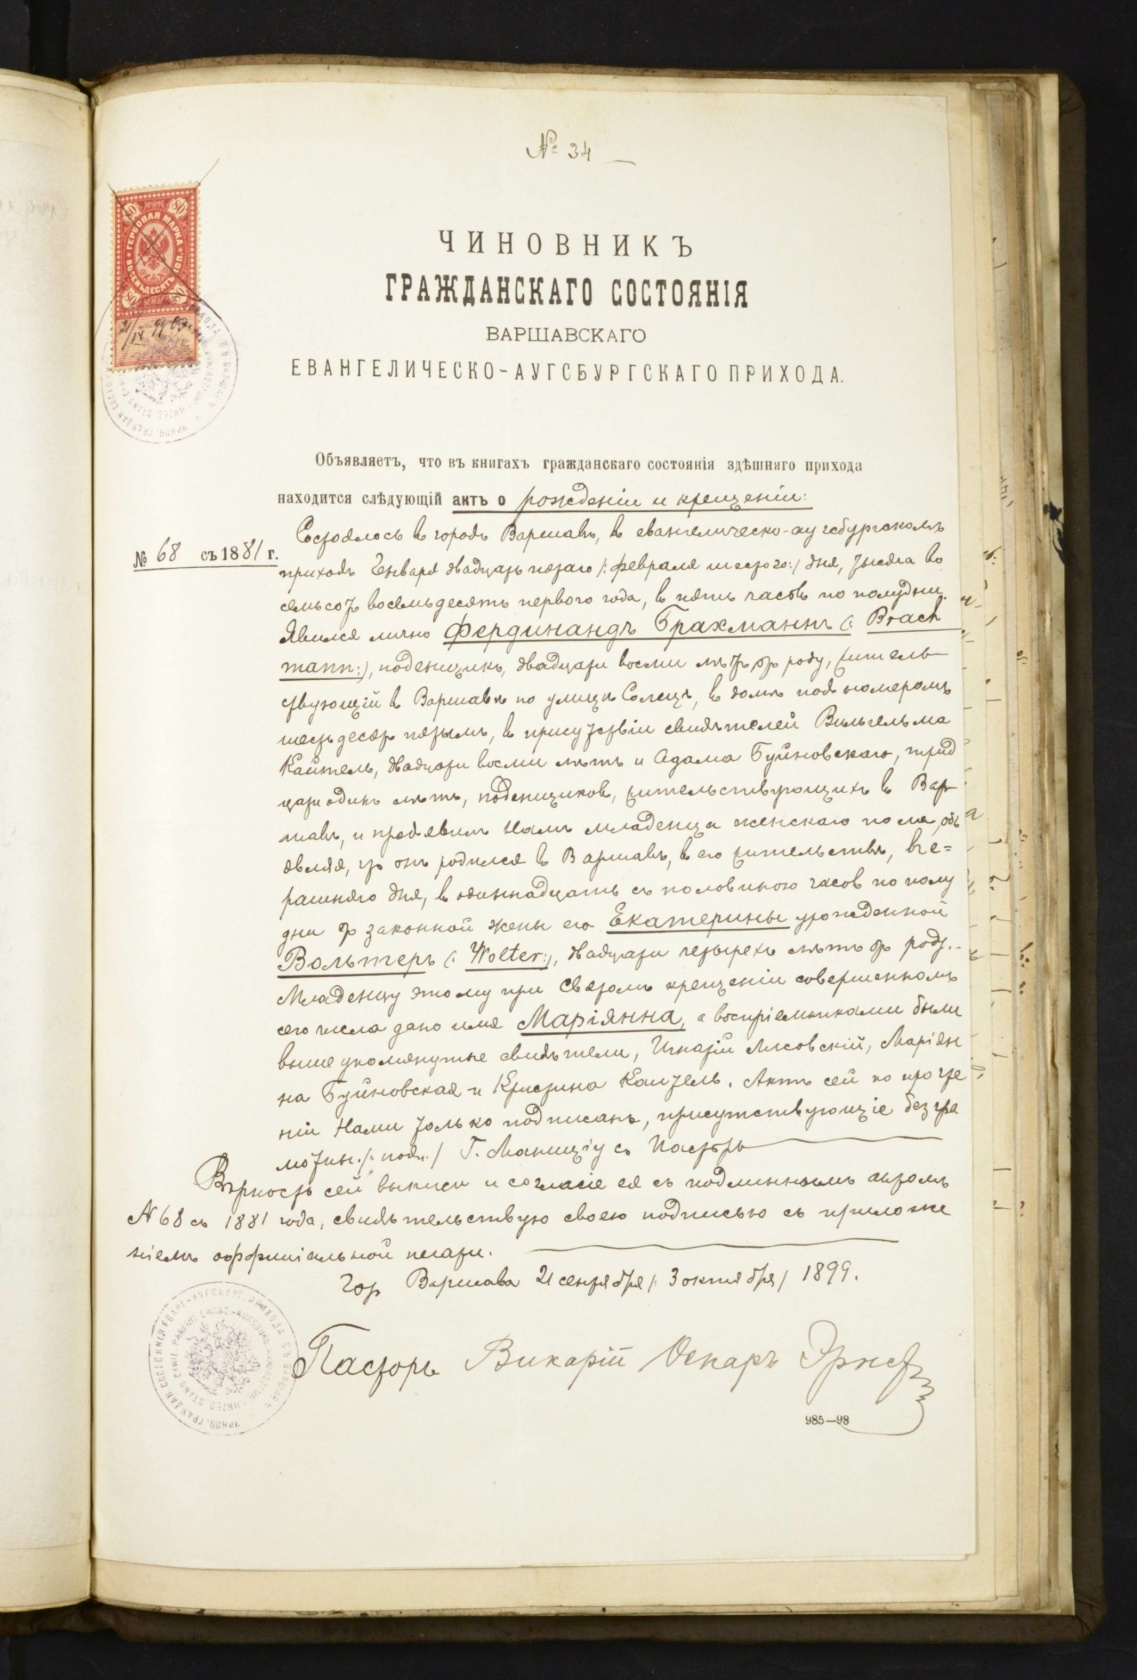 № 34
80 80
ГЕРБОВАЯ МАРКА
ВОСЕМЬДЕСЯТЪ КОП.
ЧИНОВНИКЪ
ГРАЖДАНСКАГО СОСТОЯНІЯ
ВАРШАВСКАГО
ЕВАНГЕЛИЧЕСКО-АУГСБУРГСКАГО ПРИХОДА.
Объявляетъ, что въ книгахъ гражданскаго состоянія здѣшняго прихода
находится слѣдующій актъ о рожденіи и крещеніи:
№ 68 съ 1881 г.
Состоялось въ городѣ Варшавѣ, въ евангелическо-аугсбургскомъ
приходѣ Генваря двадцать пятаго /:февраля шестого:/ дня, тысяча во
семьсотъ восемьдесятъ перваго года, въ пять часовъ по полудни.
Явился лично Фердинандъ Брахманнъ (: Brach
mann:), поденщикъ, двадцати восьми лѣтъ отъ роду, житель
ствующій въ Варшавѣ по улицѣ Солецъ, въ домѣ подъ номеромъ
шестьдесятъ пятымъ, въ присутствіи свидѣтелей Вильгельма
Кайтель, двадцати восьми лѣтъ и Адама Буйновскаго, трид
цати одинъ лѣтъ, поденщиковъ, жительствующихъ въ Вар
шавѣ, и предъявилъ Намъ младенца женскаго пола, объ
являя, что онъ родился въ Варшавѣ, въ его жительствѣ, вче=
рашняго дня, въ одиннадцать съ половиною часовъ по полу
дни отъ законной жены его Екатерины урожденной
Вольтеръ (: Wolter:), двадцати четырехъ лѣтъ отъ роду.
Младенцу этому при Святомъ крещеніи совершенномъ
сего числа дано имя Маріянна, а воспріемниками были
выше упомянутые свидѣтели, Игнатій Лисовскій, Маріян
на Буйновская и Кристина Кайтель. Актъ сей по прочте
ніи Нами только подписанъ, присутствующіе безгра
мотны. /: подп. / Г. Маниціусъ Пасторъ
Вѣрность сей выписи и согласіе ея съ подлиннымъ актомъ
№ 68 съ 1881 года, свидѣтельствую своею подписью съ приложе
ніемъ оффиціальной печати.
Гор Варшава 21 сентября /: 3 октября / 1899.
Пасторъ Викарій Оскаръ Эрнст
985—98